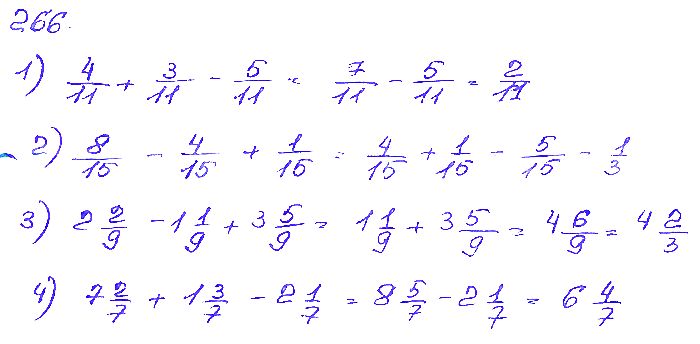 266.
1) 4/11 + 3/11 - 5/11 = 7/11 - 5/11 = 2/11
2) 8/15 - 4/15 + 1/15 = 4/15 + 1/15 - 5/15 - 1/3
3) 2 2/9 - 1 1/9 + 3 5/9 = 1 1/9 + 3 5/9 = 4 6/9 = 4 2/3
4) 7 2/7 + 1 3/7 - 2 1/7 = 8 5/7 - 2 1/7 = 6 4/7